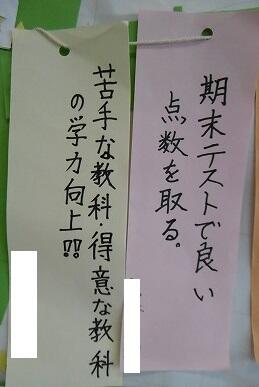 期末テストで良い
点数を取る。
苦手な教科・得意な教科
の学力向上!!